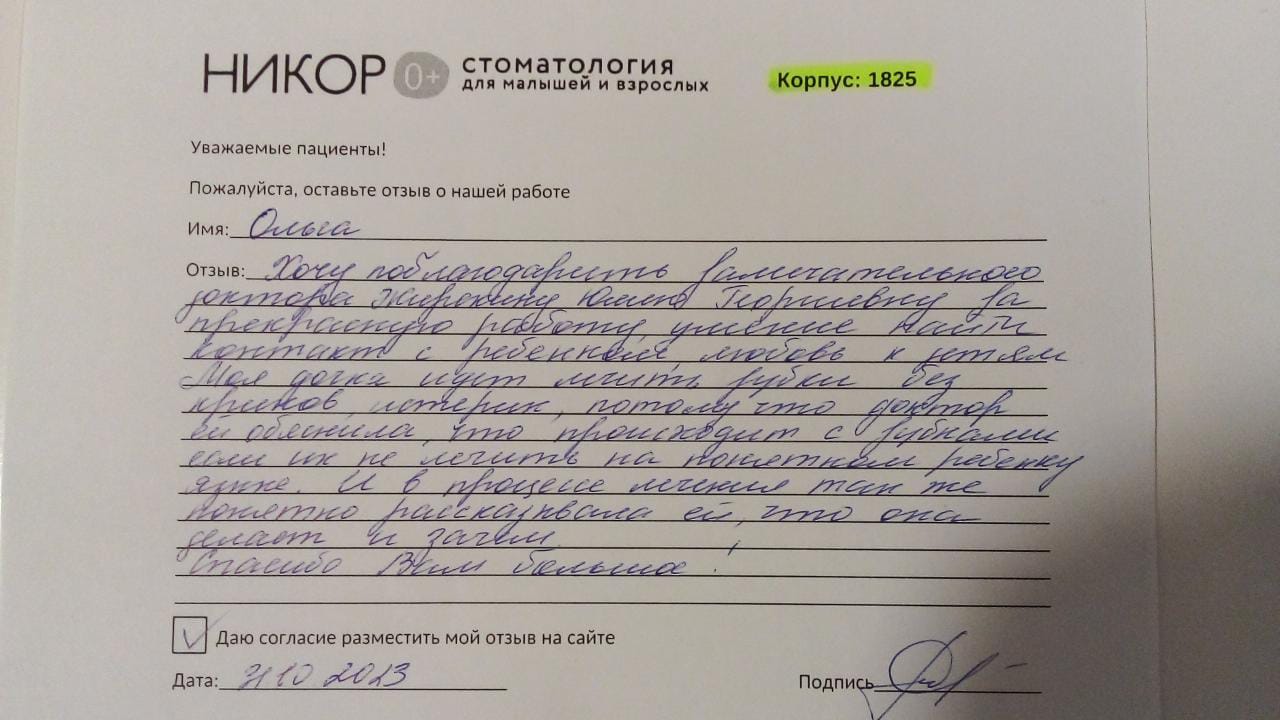 НИКОР 0+ стоматология
для малышей и взрослых
Корпус: 1825
Уважаемые пациенты!
Пожалуйста, оставьте отзыв о нашей работе
Имя: Ольга
Отзыв: Хочу поблагодарить замечательного
доктора Юлию Георгиевну за
прекрасную работу, умение найти
контакт с ребенком, любовь к детям
Моя дочка идет лечить зубки без
криков, истерик, потому что доктор
ей обяснила, что происходит с зубками
если их не лечить на понятном ребенку
языке. И в процессе лечения так же
понятно рассказывала ей, что она
делает и зачем
Спасибо Вам большое!
Даю согласие разместить мой отзыв на сайте
Дата: 31 10 2023
Подпись